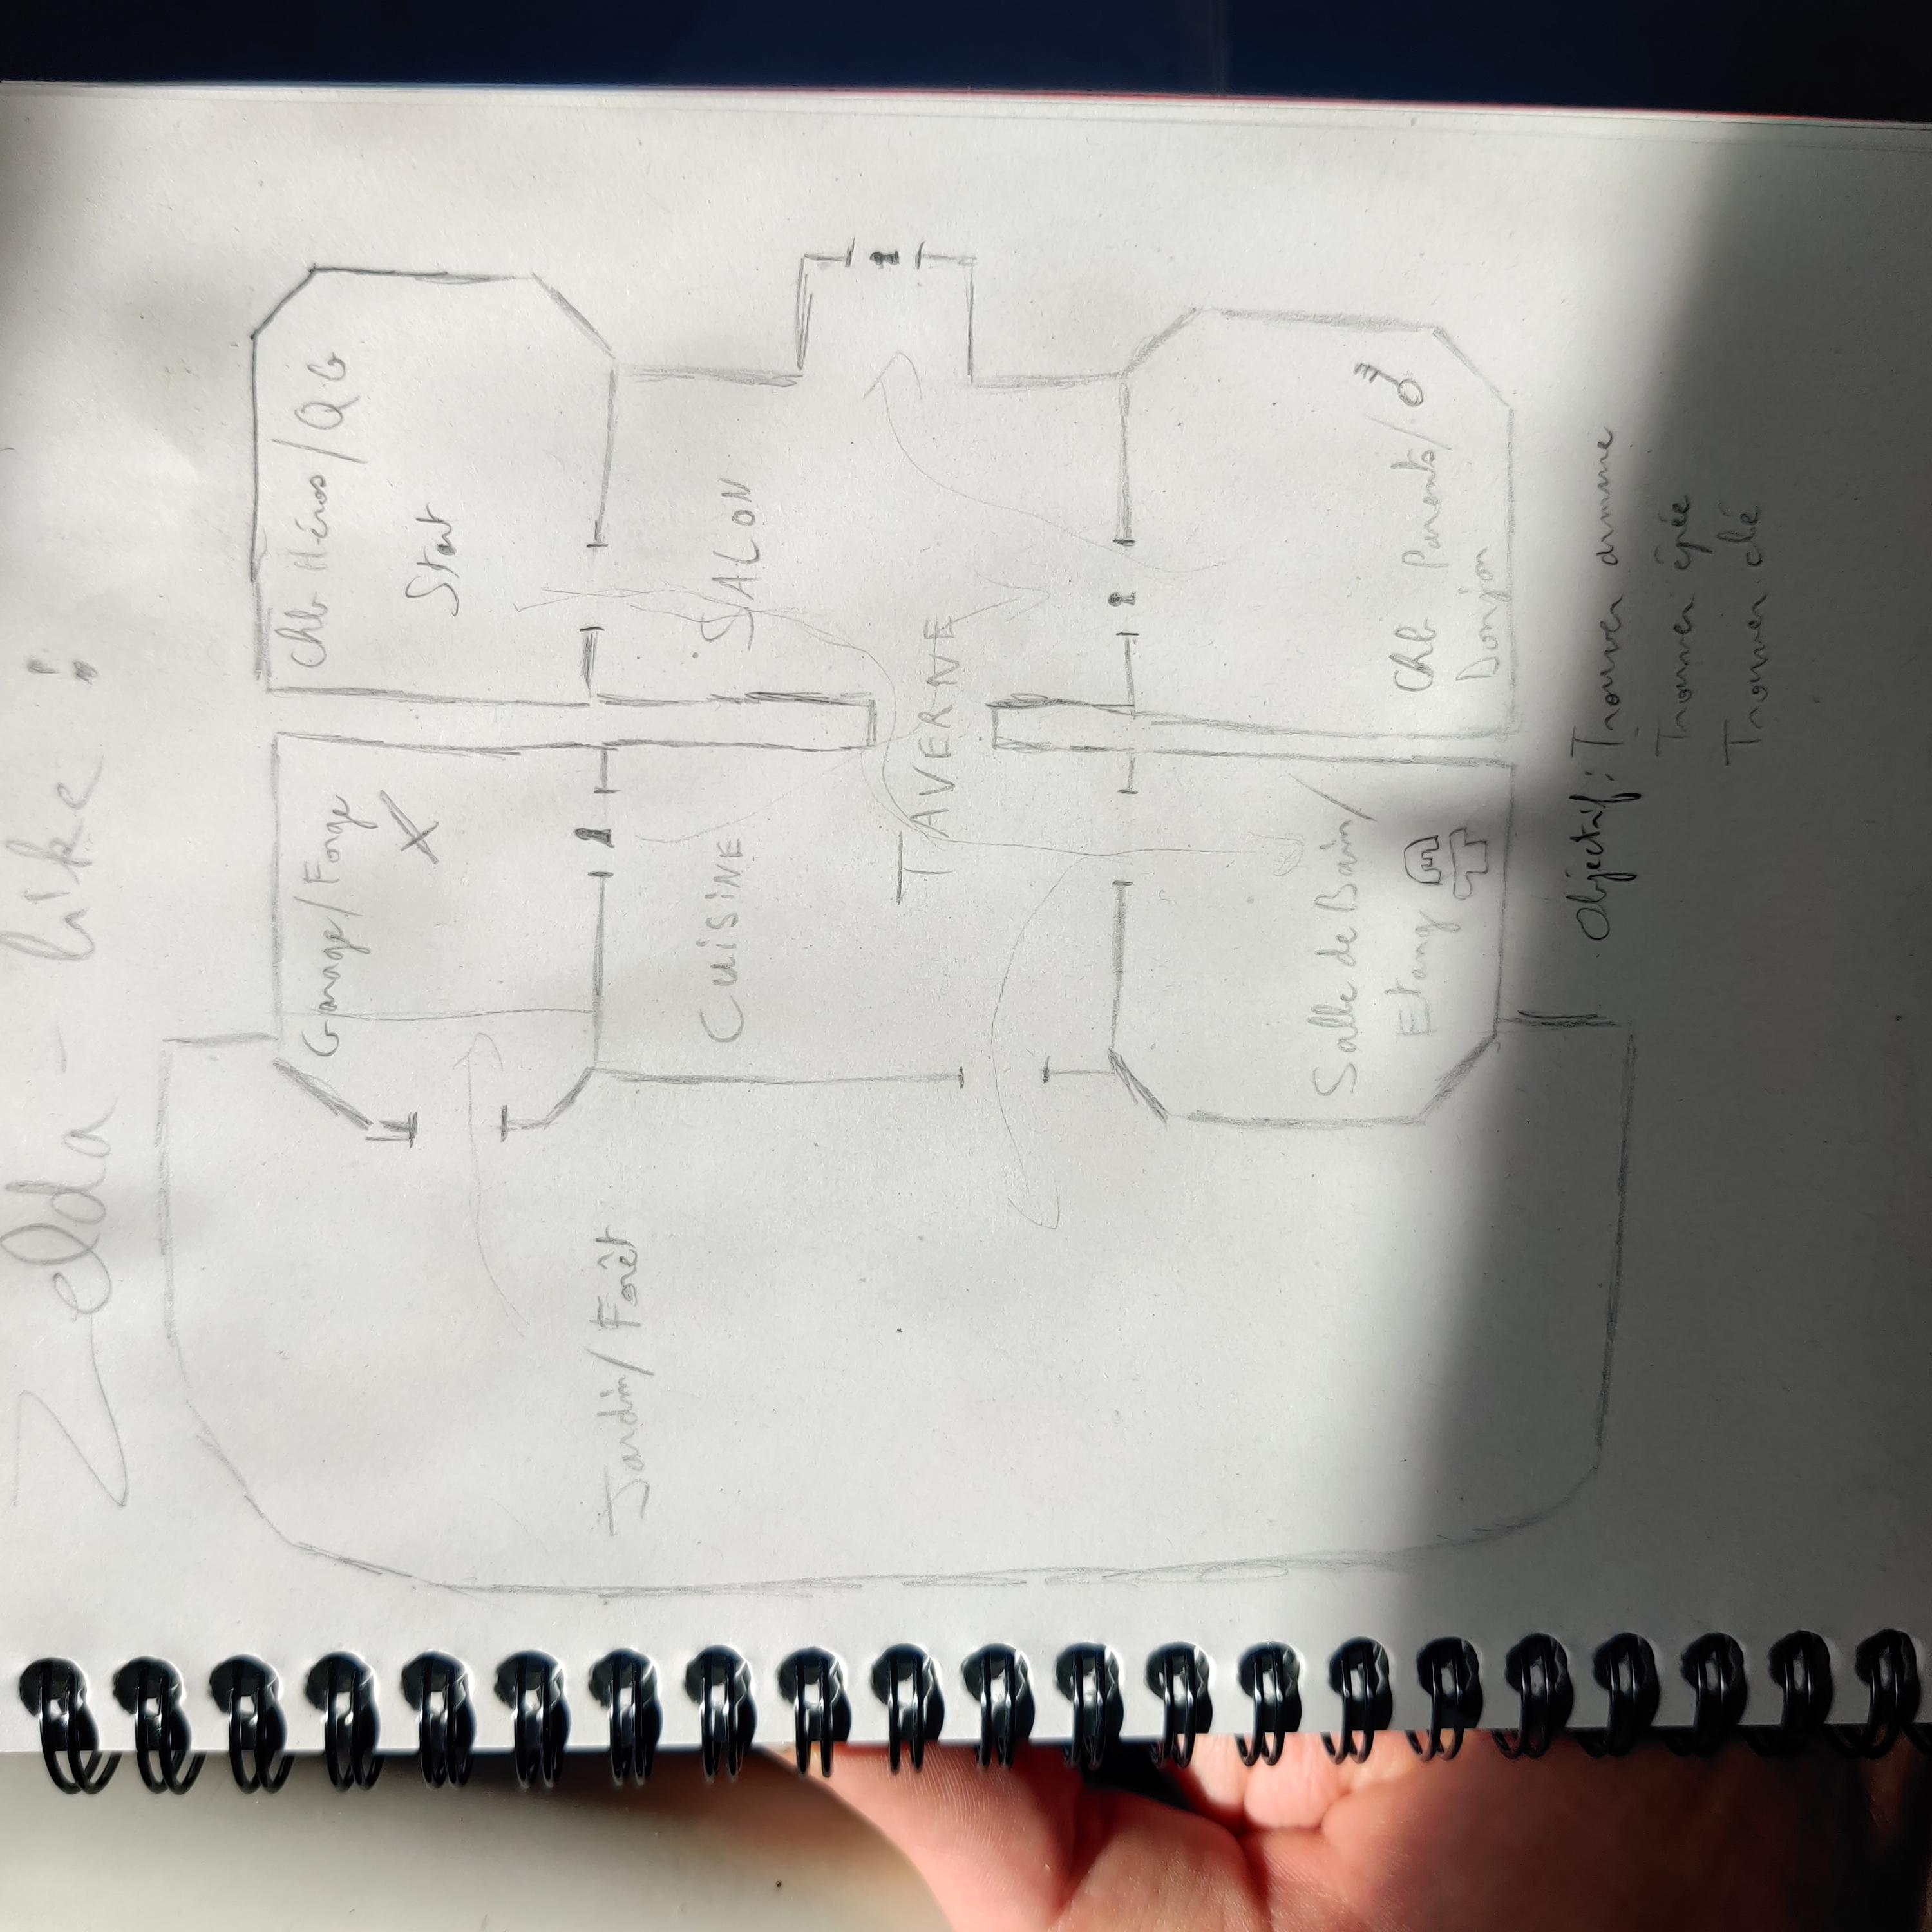 Zelda-like :
Garage/Forge
Chb Héros/QG
Start
Jardin/Forêt
CUISINE
SALON
TAVERNE
Salle de Bain/
Etang
Chb Parents/
Donjon
Objectif : Trouver armure
Trouver épée
Trouver clé